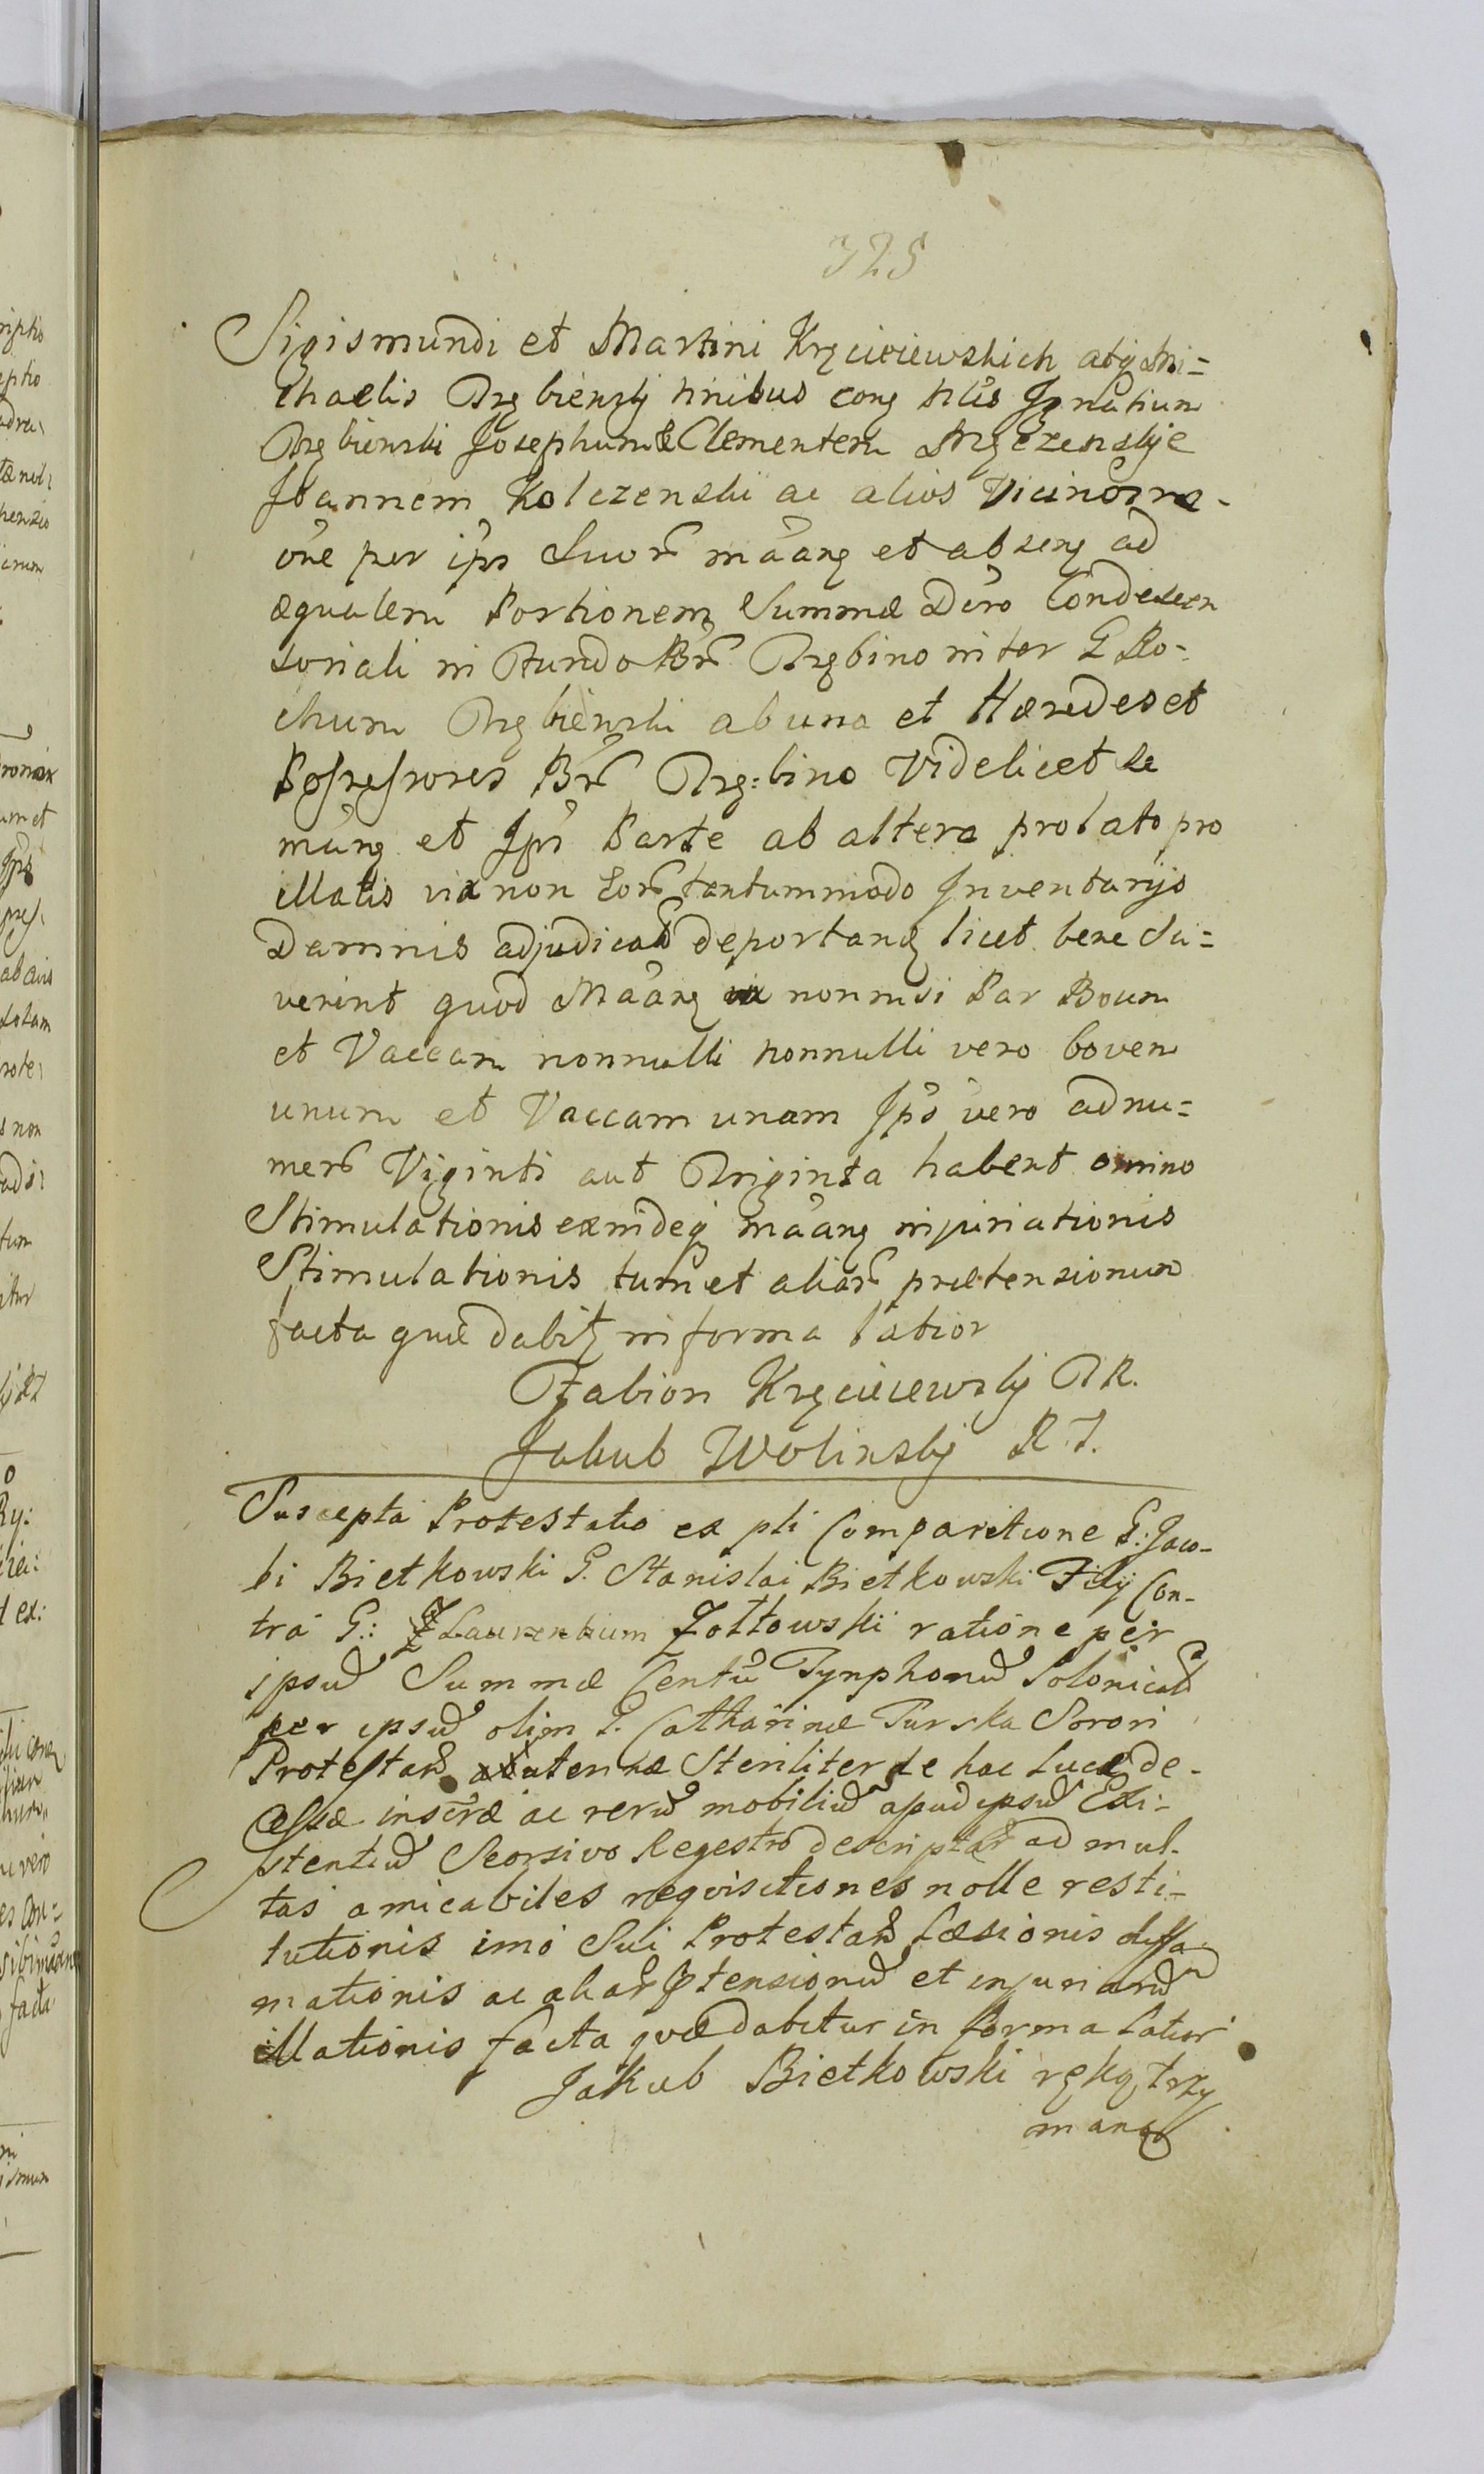 325
Sigismundi et Martini Kręciewskich atq Mi=
chaelis Trębiensky hinibus conq Nles Ignatium
Trębienski Josephum & Clementem Męczenskje
Joannem Kolczenski ac alios Vicinos ra-
õne per ips Suor maanq et absenq ad
æqualem Portionem Summæ Dero Condescen
soriali in Fundo Bñ Trębino inter G Ro-
chum Trębienski ab una et Hæredes et
Possessores Bñ Trę=bino Videlicet se
manq et Ips Parte ab altera prolato pro
illatis via non Eor tantummodo Inventarys
Damnis adjudicat deportanq licet bene Sci=
verint quod Maanq nonnisi Par Boum
et Vaccam nonnulli nonnulli vero bovem
unum et Vaccam unam Ips vero ad nu=
mer Viginti aut Triginta habent omino
Stimulationis exindeq maanq injuriationis
Stimulationis tum et aliar prætensionum
facta quæ dabitʒ in forma latior
Fabion Kręciewsky TR.
Jakub Wolinsky R T.
Suscepta Protestatio ex pli Comparitione G: Jaco-
bi Bietkowski G. Stanislai Bietkowski Filij Con-
tra G: Laurentium Zołtowski ratione per
ipsu Summæ Centu Tynphonu Polonical
per ipsu olim G. Catharinæ Turska Sorori
Protestan uterinæ Steriliter de hac Luce de-
cessæ inscræ ac reru mobiliu apud ipsu Exi-
stentiu Seorsivo Regestro descriptar ad mul-
tas amicabiles reqvisitiones nolle resti-
tutionis imo Sui Protestan Læsionis diffa
mationis ac aliar ptensionu et injuriaru
illationis facta quæ dabitur in forma latiori
Jakub Bietkowski ręką trzy
maną